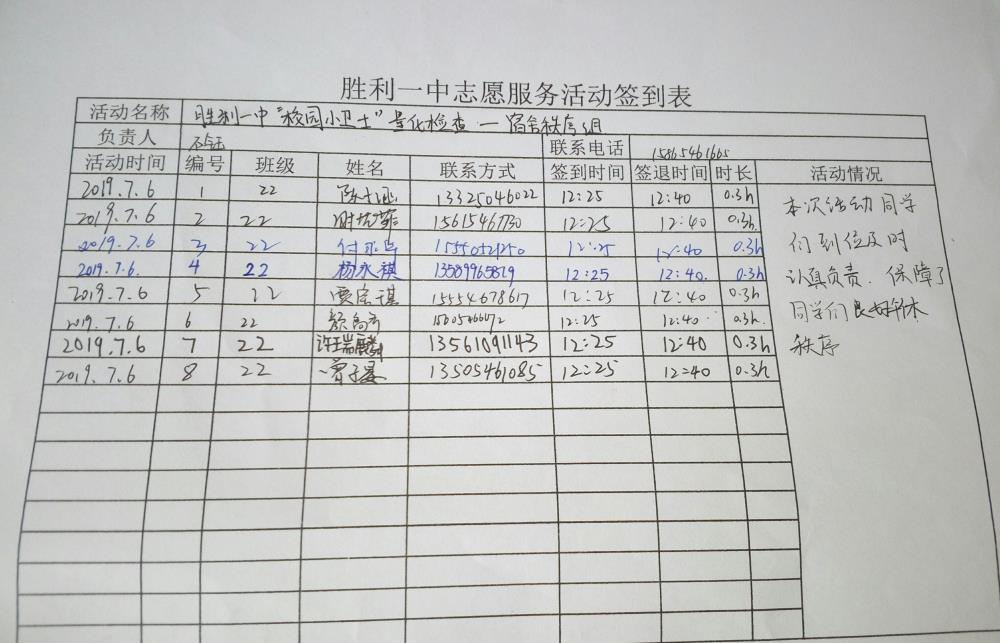 胜利一中志愿服务活动签到表
活动名称 胜利一中"校园小卫士"量化检查—宿舍秩序组
负责人 联系电话 15865461665
活动时间 编号 班级 姓名 联系方式 签到时间 签退时间 时长 活动情况
2019.7.6 1 22 13325046022 12:25 12:40 0.3h
2019.7.6 2 22 15615467730 12:25 12:40 0.3h
2019.7.6 3 22 12:25 12:40 0.3h
2019.7.6. 4 22 杨永祺 13589965879 12:25 12:40. 0.3h
2019.7.6 5 22 15554678617 12:25 12:40 0.3h
2019.7.6 6 22 12:25 12:40 0.3h.
2019.7.6 7 22 许王瑞麟 13561091143 12:25 12:40 0.3h
2019.7.6 8 22 曾子晏 13505461085 12:25 12:40 0.3h
本次活动同学
们到位及时
认真负责.保障了
同学们良好午休
秩序